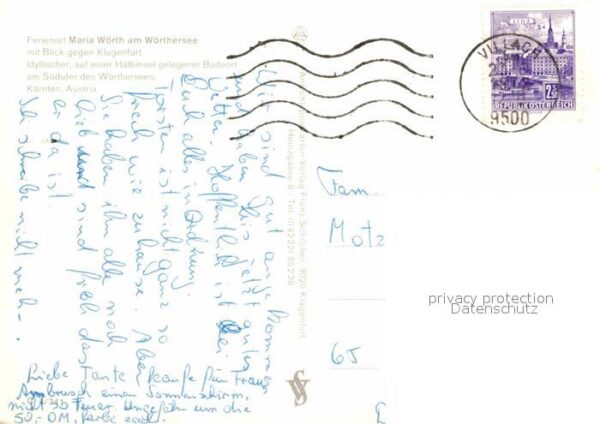 Ferienort Maria Wörth am Wörthersee
mit Blick gegen Klagenfurt
Idyllischer, auf einer Halbinsel gelegener Badeort
am Südufer des Wörthersees;
Kärnten, Austria
LINZ
2.50
REPUBLIK ÖSTERREICH
VILLACH
9500
Verlag Franz Schilcher, 9020 Klagenfurt,
Heinzgasse 6 - Tel. (04222) 85228
Wir sind gut angekommen
und haben bis jetzt gutes
Wetter. Hoffentlich ist bei
Euch alles in Ordnung.
Torsten ist nicht ganz so
frech wie zu hause. Aber
Sie haben ihn alle noch
lieb und sind froh das
er da ist.
Ich schreibe nicht mehr.
Liebe Tante, kaufe für Frau
Ambrusch einen Sonnenschirm,
nicht so teuer. Ungefähr um die
50,- DM, Farbe egal.
Fam
Motz
65
privacy protection
Datenschutz